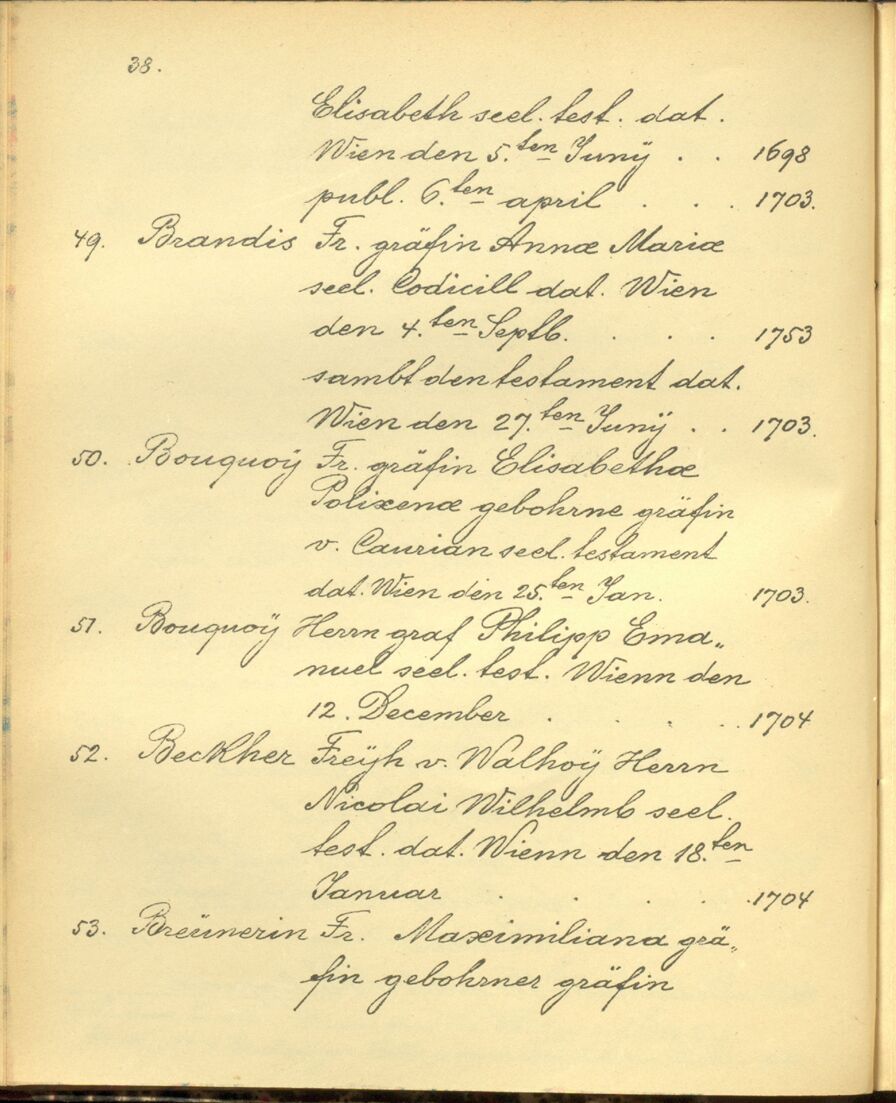 38.
Elisabeth seel. test. dat.
Wien den 5.ten Juny . . 1698
publ. 6.ten april . . . 1703.
49. Brandis Fr. gräfin Annæ Mariæ
seel. Codicill dat. Wien
den 4.ten Septb. . . . 1753
sambt den testament dat.
Wien den 27.ten Junÿ . . 1703.
50. Bouquoÿ Fr. gräfin Elisabethæ
Polixenæ gebohrne gräfin
v. Caurian seel. testament
dat. Wien den 25.ten Jan. 1703.
51. Bouquoÿ Herrn graf Philipp Ema„
nuel seel. test. Wienn den
12. December . . . . 1704
52. Beckher Freÿh v. Walhoÿ Herrn
Nicolai Wilhelmb seel.
test. dat. Wienn den 18.ten
Januar . . . . . 1704
53. Breünerin Fr. Maximiliana grä„
fin gebohrner gräfin